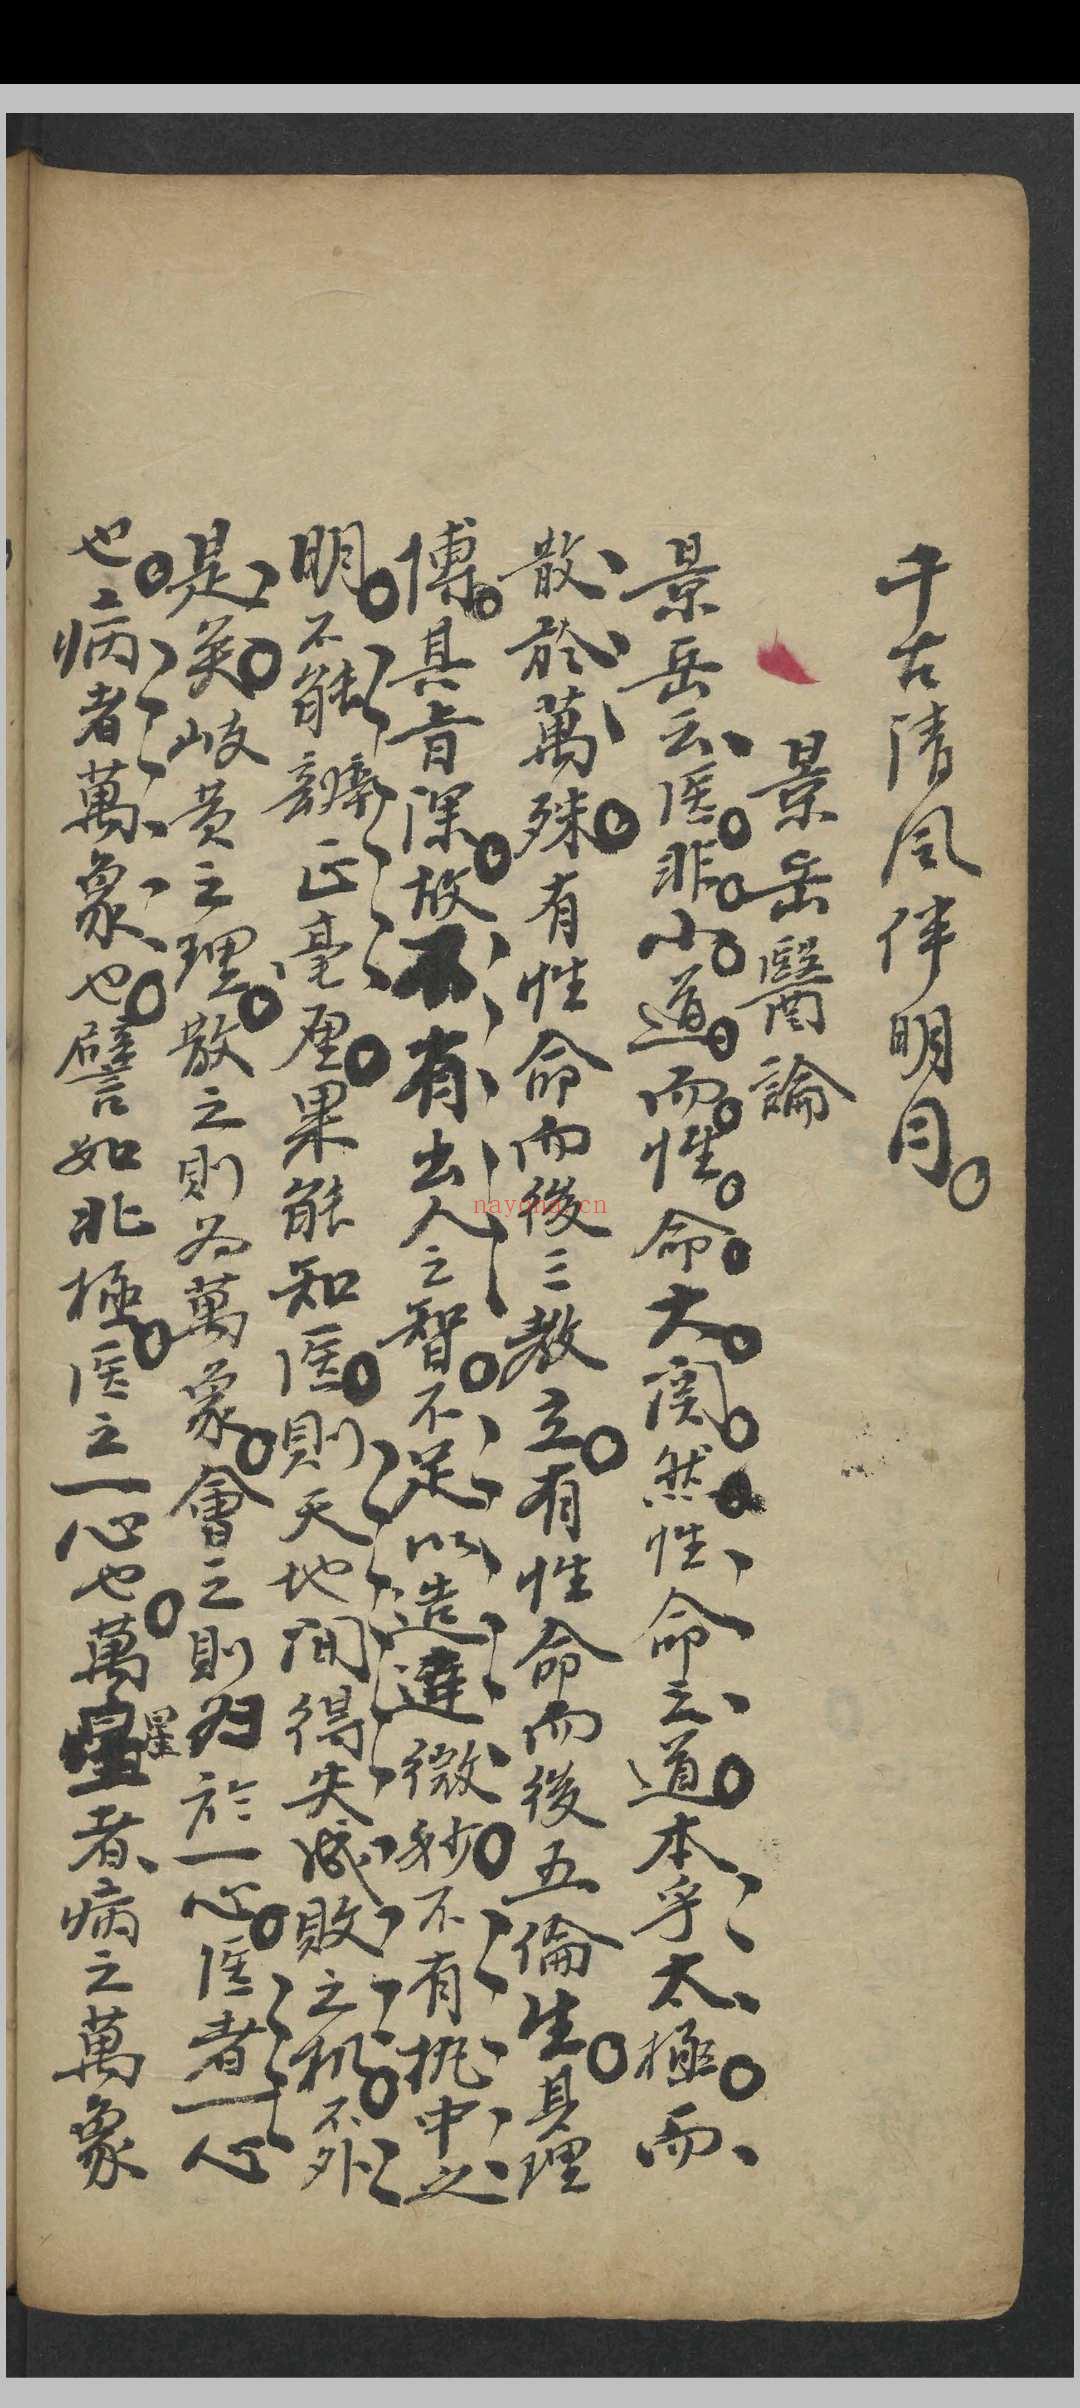 千古清風伴明月
景岳醫論
景岳云医非小道而性命大関然性命之道本乎太極而
散於萬殊有性命而後三教立有性命而後五倫生具理
博其旨深故不有出人之智不足以造達微妙不有执中之
明不能辨正毫厘果能知医則天地間得失成敗之机不外
是矣岐黄之理散之則为萬象會之則归於一心医者一心
也病者萬象也譬如北極医之一心也萬星者病之萬象
星
nayona.cn